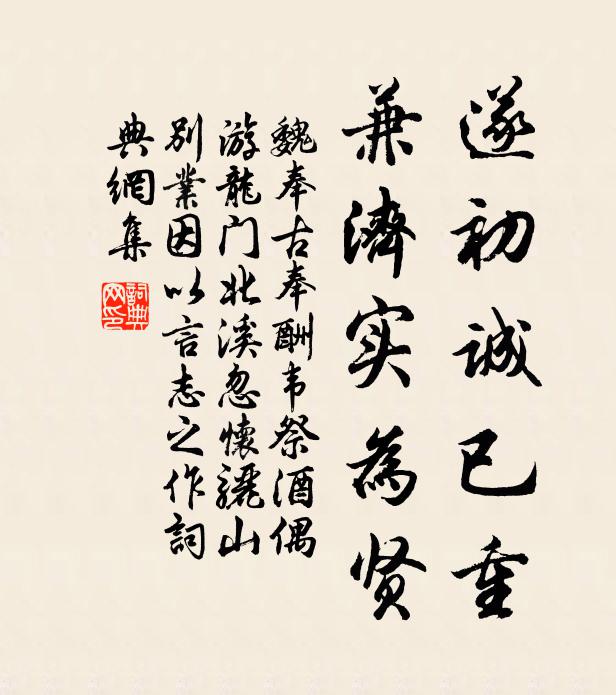 遂初诚已重
兼濟实為贤
魏奉古奉酬韦祭酒偶
游龍门北溪忽懷骊山
别業因以言志之作詞
典網集
詞典
网印